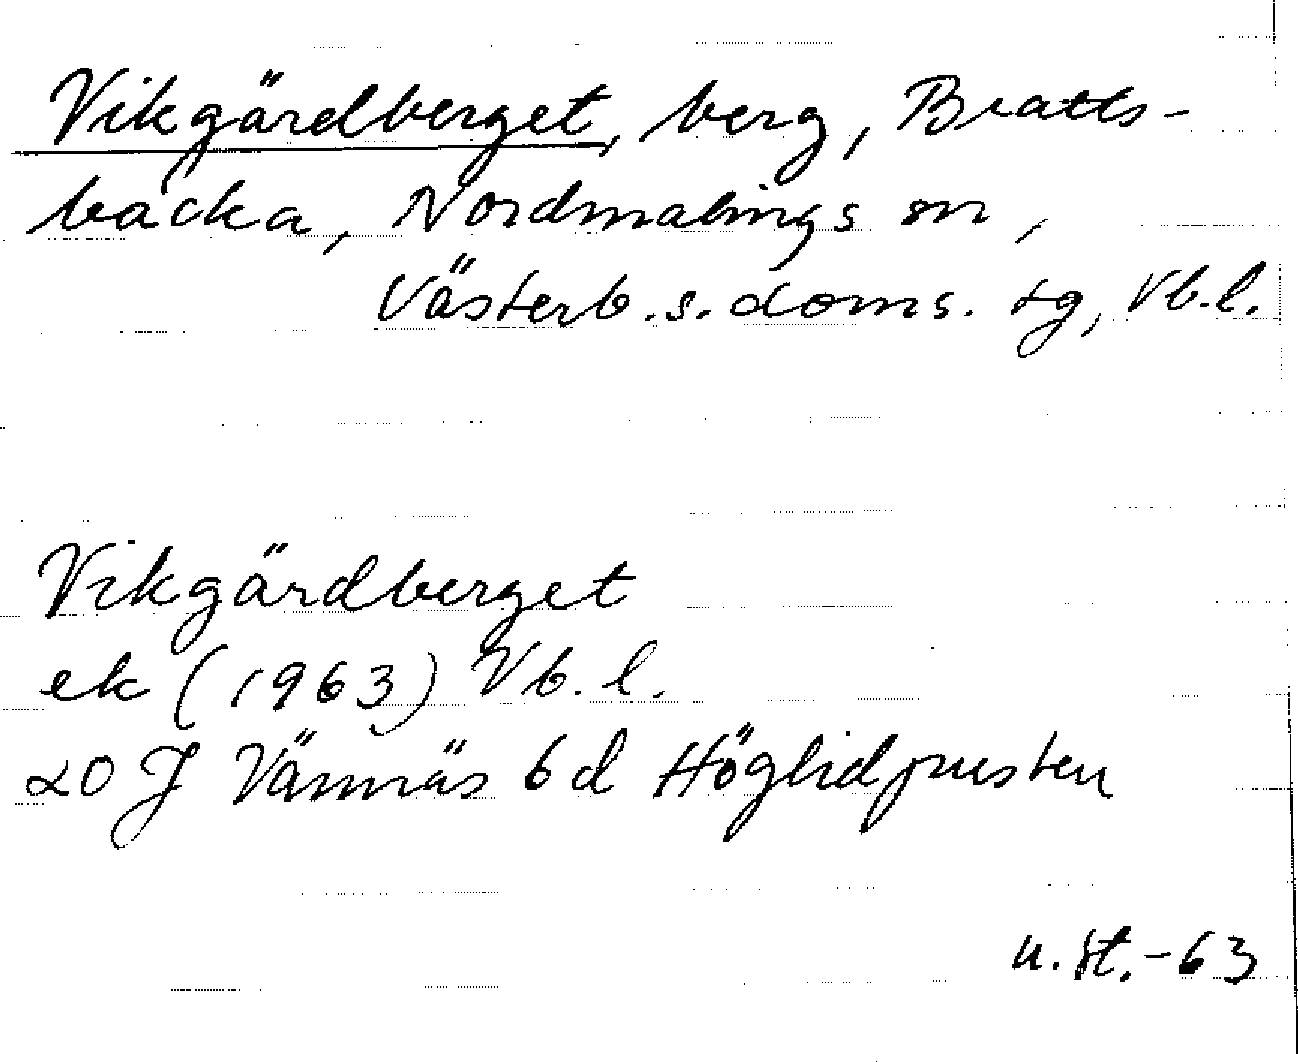 Vikgärdberget, berg, Bratts-
backa, Nordmalings sn,
Västerb.s.doms. tg, Vb.l.
Vikgärdberget
ek (1963) Vb.l.
20 J Vännäs 6d Höglidpusten
u.st.-63